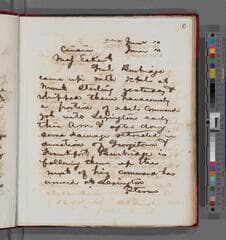 6
June 10
June 10
Maj Eckert
Genl Burbridge
came up with rebels at
Mount Sterling yesterday &
whipped them handsomely
a portion of rebel command
got into Lexington early
this AM & after doing
some damage retreated in
direction of Georgetown &
Frankfort Burbridge is
following them up the
most of his command has
arrived at Lexington